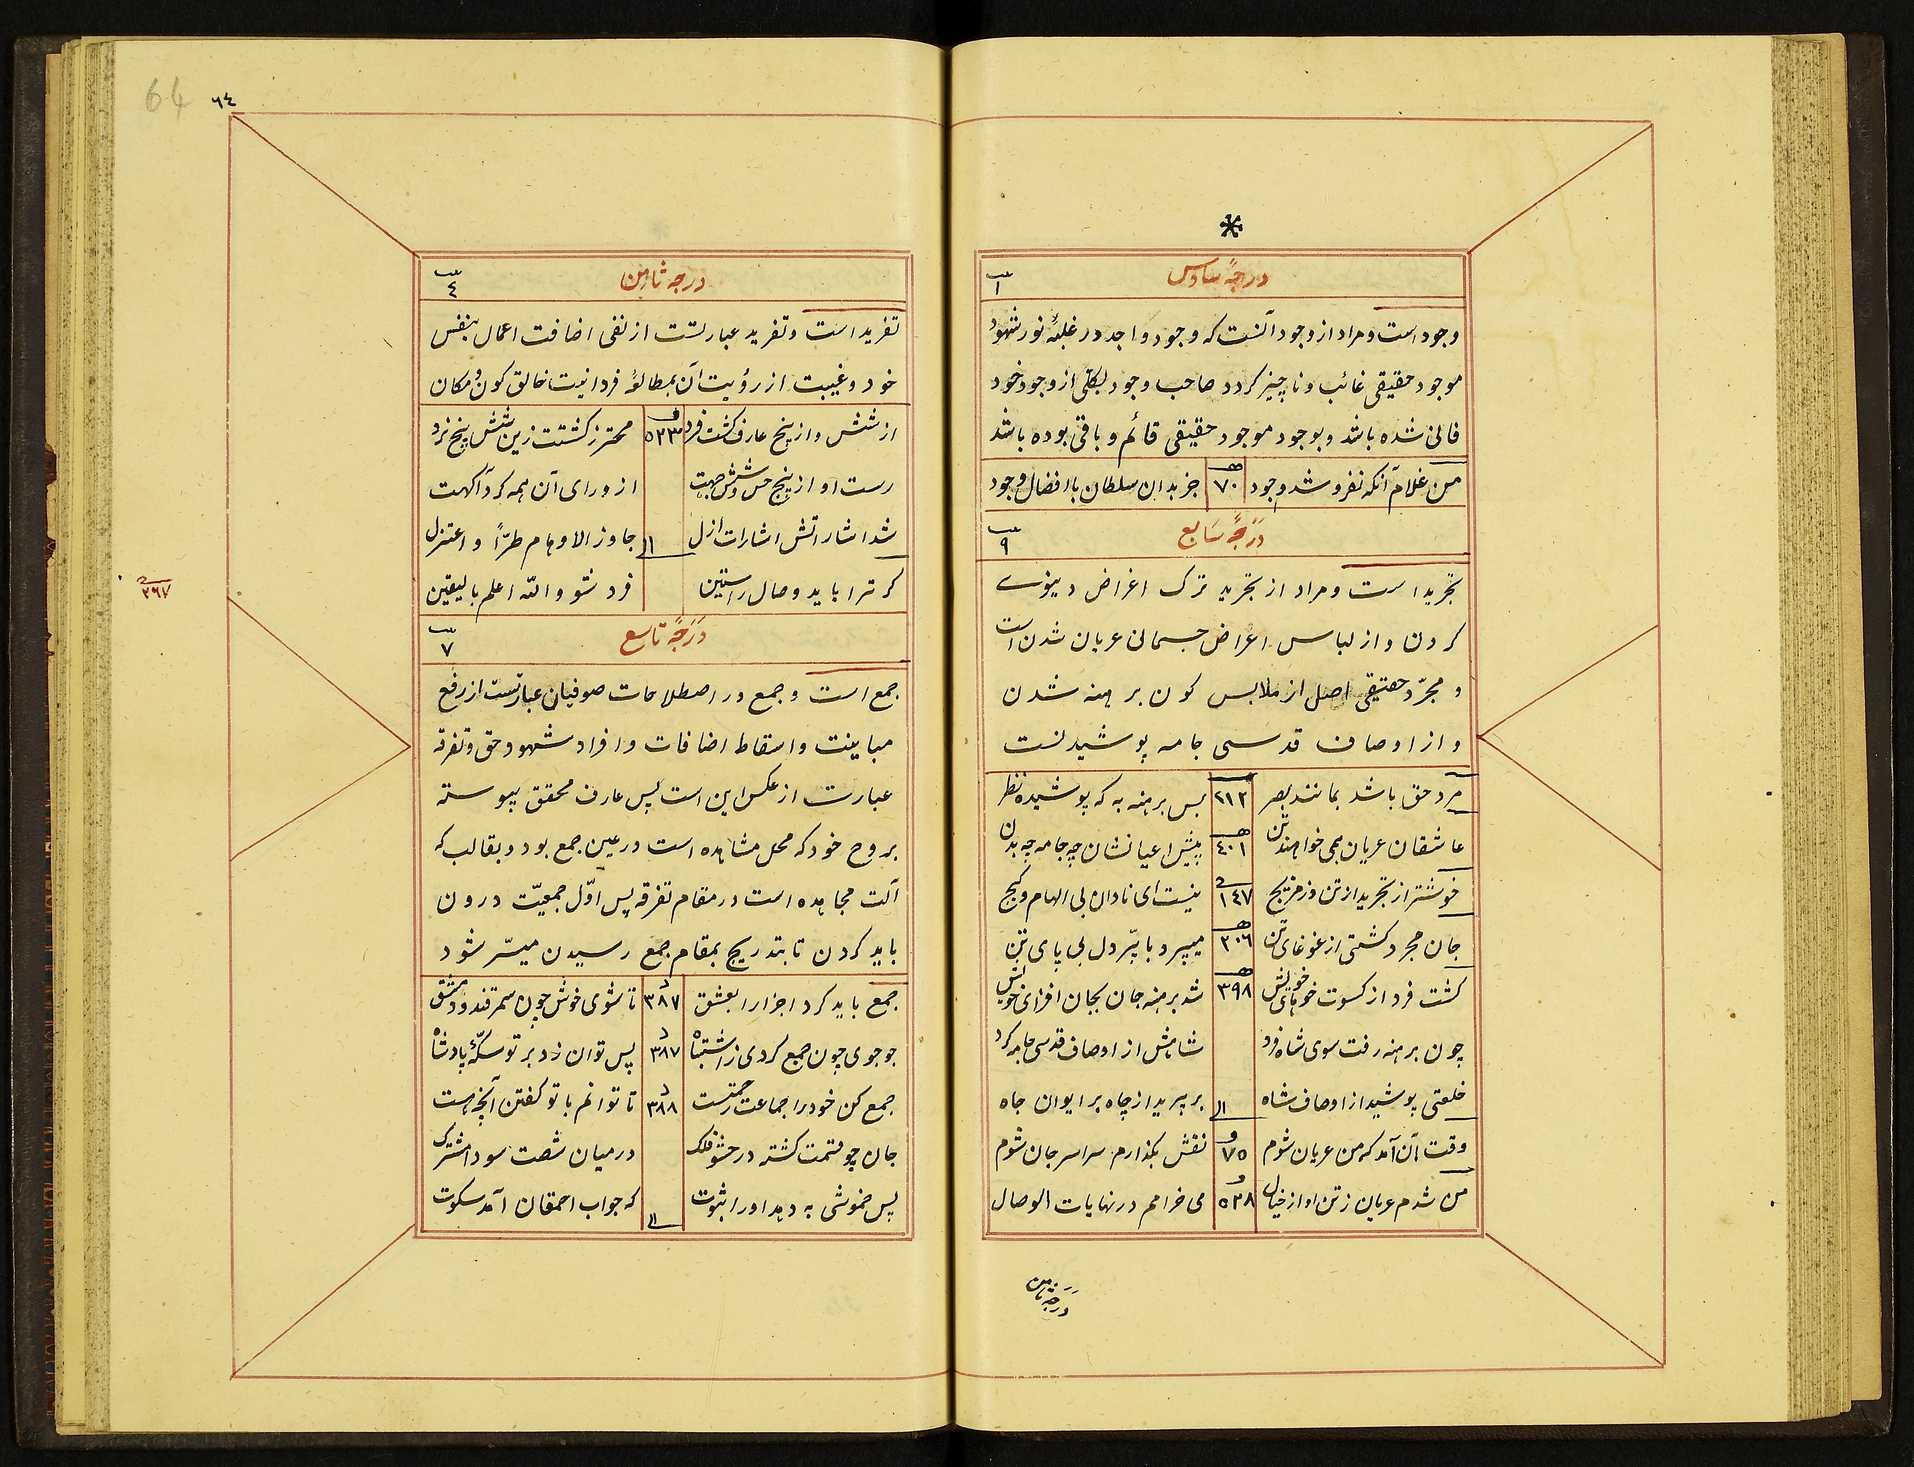 *
درجهٔ سادس
ب ١
وجود است و مراد از وجود آنست که وجود واجد در غلبهٔ نور شهود
موجود حقیقی غائب و ناچیز کردد صاحب وجود بکلی از وجود خود
فانی شده باشد و بوجود موجود حقیقی قائم و باقی بوده باشد
من غلام آنکه نفروشد وجود ٧٠ جز بدان سلطان باافضال وجود
درجهٔ سابع
ب ٩
تجرید است و مراد از تجرید ترک اغراض دینوی
کردن و از لباس اعراض جسمانی عریان شدن است
و مجرّد حقیقی اصل از ملابس کون برهنه شدن
و از اوصاف قدسی جامه پوشیدنست
مرد حق باشد بمانند بصر ٢١٢ بس برهنه به که پوشیده نظر
عاشقان عریان همی خواهند تن ٤٠١ پیش اعیانشان چه جامه چه بدن
خوشتر از تجرید از تن وز مزیج ١٤٧ نیست ای نادان بی الهام و کیج
جان مجرد کشتی از غوغای تن ٣٠٦ میپرد با پّر دل بی پای تن
کشت فرد از کسوت خوهای خویش ٣٩٨ شد برهنه جان بجان افزای خویش
چون برهنه رفت سوی شاه فرد شاهش از اوصاف قدسی جامه کرد
خلعتی پوشید از اوصاف شاه الـ بر پرید از چاه بر ایوان جاه
وقت آن آمد که من عریان شوم ٧٥ نقش بکذارم سراسر جان شوم
من شدم عریان ز تن او از خیال ٥٣٨ می خرامم در نهایات الوصال
درجهٔ ثامن
64 ٦٤
درجه ثامن
ب ٤
تفرید است و تفرید عبارتست از نفی اضافت اعمال بنفس
خود و غیبت از رؤیت آن بمطالعهٔ فردانیت خالق کون و مکان
از شش و از پنج عارف کشت فرد ٥٢٣ محترز کشتت زین شش پنج نرد
رست او از پنج حس و شش جهت از ورای آن همه کرد آکهت
شد اشاراتش اشارات ازل الـ جاوز الاوهام طرّاً و اعتزل
کر ترا باید وصال راستین فرد شو والله اعلم بالیقین
٢٦٧
درجهٔ تاسع
ب ٧
جمع است و جمع در اصطلاحات صوفیان عبارتست از رفع
مباینت و اسقاط اضافات و افراد شهود حق و تفرقه
عبارت از عکس این است پس عارف محقق پیوسته
بروح خود که محل مشاهده است در عین جمع بود و بقالب که
آلت مجاهده است در مقام تفرقه پس اوّل جمعیّت درون
باید کردن تا بتدریج بمقام جمع رسیدن میسّر شود
جمع باید کرد اجزا را بعشق ٣٨٧ تا شوی خوش چون سمرقند و دمشق
جوجوی چون جمع کردی ز اشتباه ٣٨٧ پس توان زد بر تو سکّهٔ پادشاه
جمع کن خود را جماعت رحمتست ٣٨٨ تا توانم با تو کفتن آنچه هست
جان چو قسمت کشته در حشو فلک در میان شصت سودا مشترک
پس خموشی به دهد او را ثبوت الـ که جواب احمقان آمد سکوت